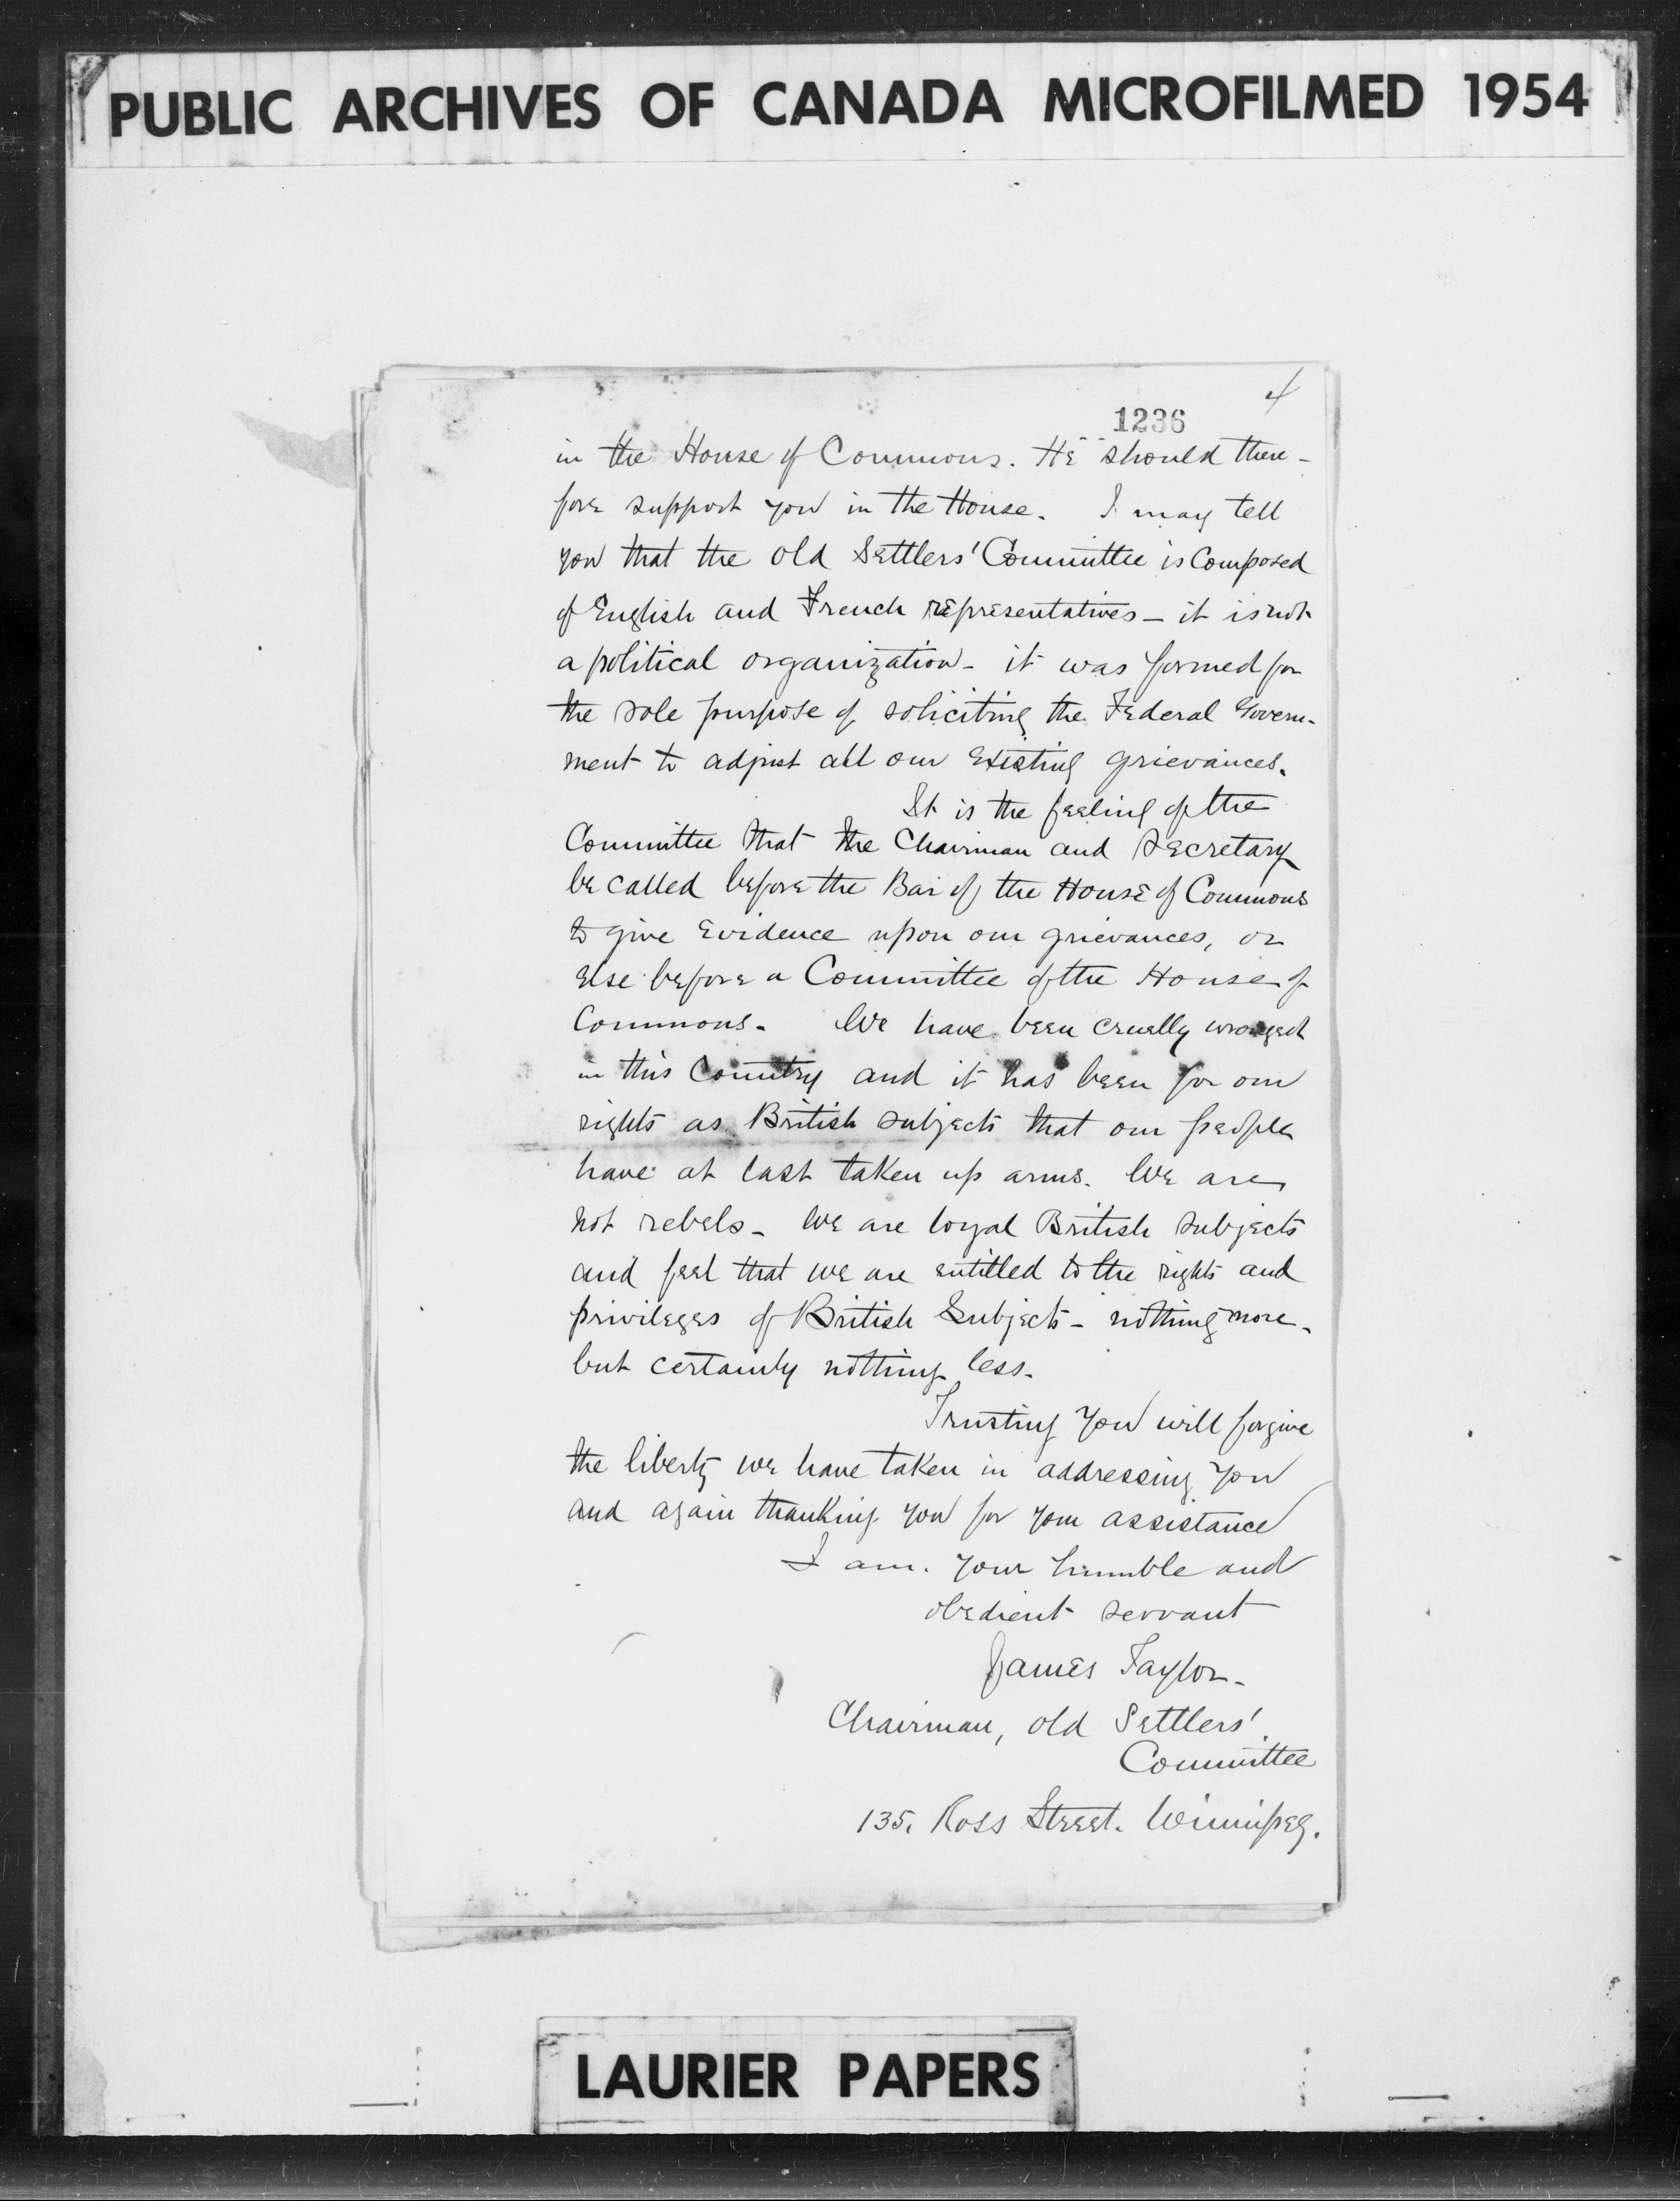 PUBLIC ARCHIVES OF CANADA MICROFILMED 1954
4
1236
in the House of Commons. He should there-
fore support you in the House. I may tell
you that the Old Settlers' Committee is Composed
of English and French representatives — it is not
a political organization - it was formed for
the sole purpose of soliciting the Federal Govern-
ment to adjust all our Existing grievances.
It is the feeling of the
Committee that the Chairman and Secretary
be called before the Bar of the House of Commons
to give Evidence upon our grievances, or
Else before a Committee of the House of
Commons. We have been cruelly wronged
in this Country and it has been for our
rights as British subjects that our people
have at last taken up arms. We are
not rebels - We are loyal British subjects
and feel that we are entitled to the rights and
privileges of British Subjects - nothing more -
but certainly nothing less.
Trusting You will forgive
the liberty we have taken in addressing You
and again thanking you for your assistance
I am. your humble and
obedient servant
James Taylor.
Chairman, Old Settlers'
Committee
135. Ross Street. Winnipeg.
LAURIER PAPERS